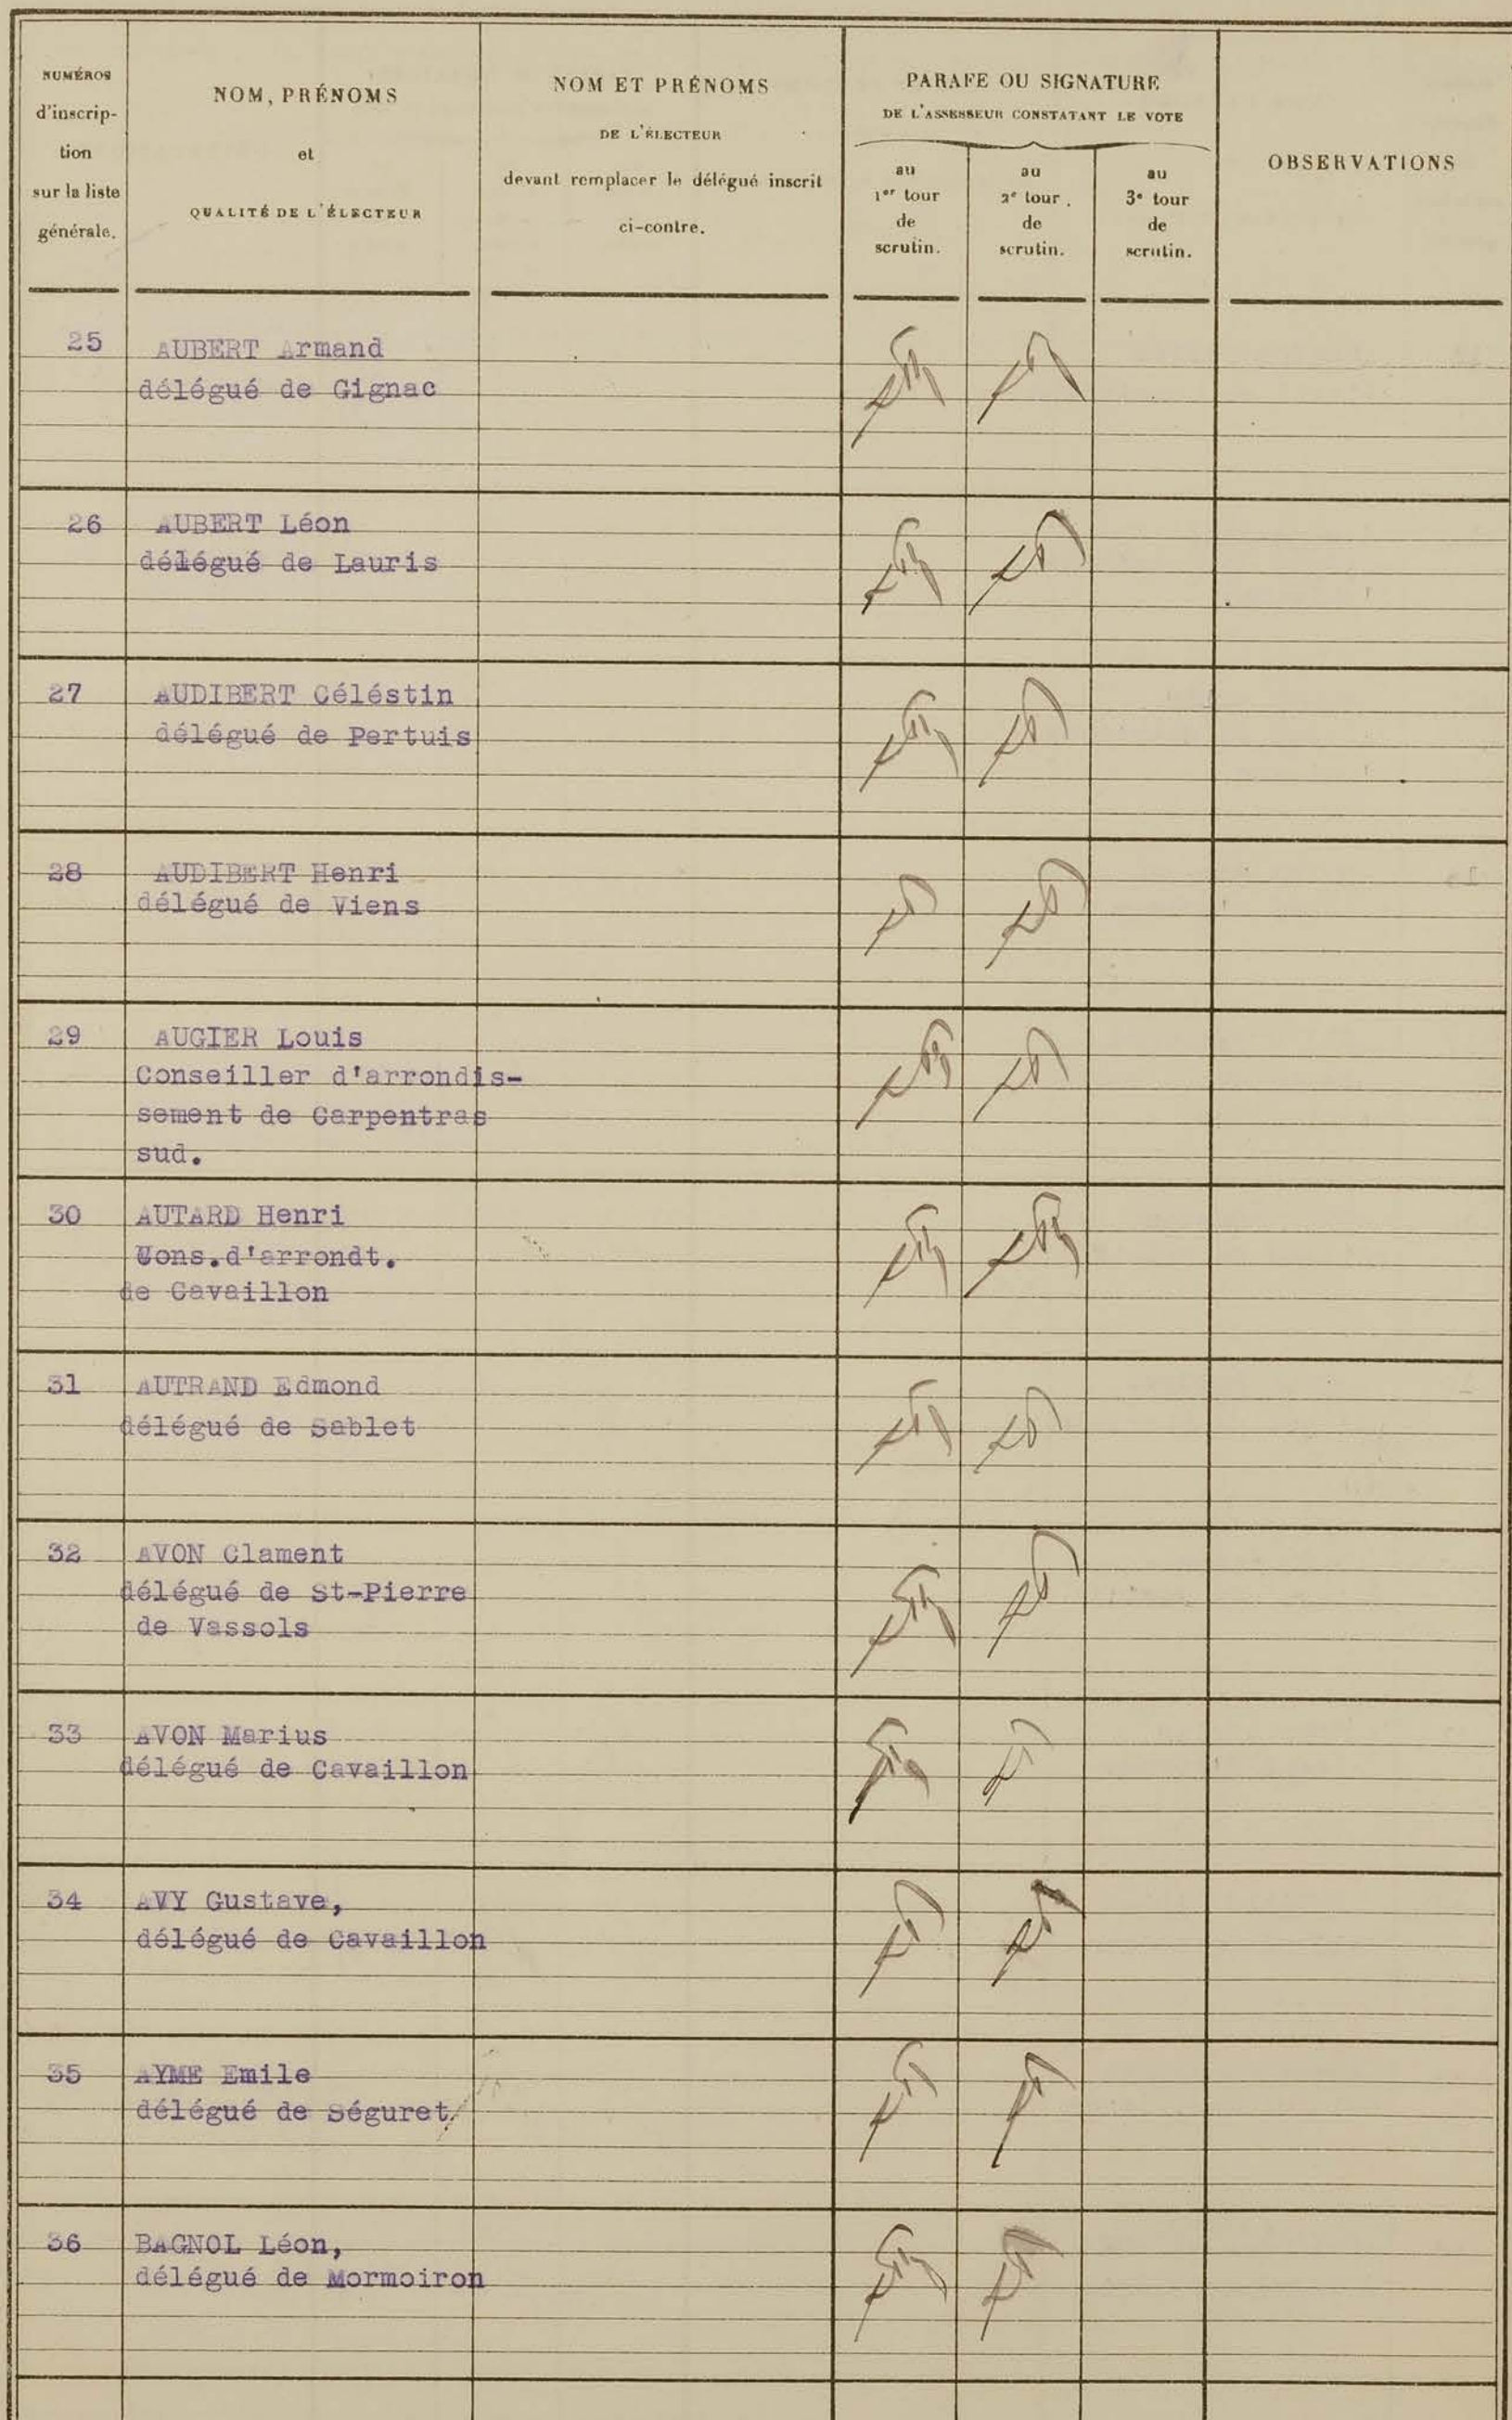 NUMÉROS
d'inscrip-
tion
sur la liste
générale.
NOM, PRÉNOMS
et
QUALITÉ DE L'ÉLECTEUR
NOM ET PRÉNOMS
DE L'ÉLECTEUR
devant remplacer le délégué inscrit
ci-contre.
PARAFE OU SIGNATURE
DE L'ASSESSEUR CONSTATANT LE VOTE
au
1er tour
de
scrutin.
au
2e tour.
de
scrutin.
au
3e tour
de
scrutin.
OBSERVATIONS
25 AUBERT Armand
délégué de Gignac
26 AUBERT Léon
délégué de Lauris
27 AUDIBERT Céléstin
délégué de Pertuis
28 AUDIBERT Henri
délégué de Viens
29 AUGIER Louis
Conseiller d'arrondis-
sement de Carpentras
sud.
30 AUTARD Henri
Cons.d'arrondt.
de Cavaillon
31 AUTRAND Edmond
délégué de Sablet
32 AVON Clament
délégué de St-Pierre
de Vassols
33 AVON Marius
délégué de Cavaillon
34 AVY Gustave,
délégué de Cavaillon
35 AYME Emile
délégué de Séguret
36 BAGNOL Léon,
délégué de Mormoiron